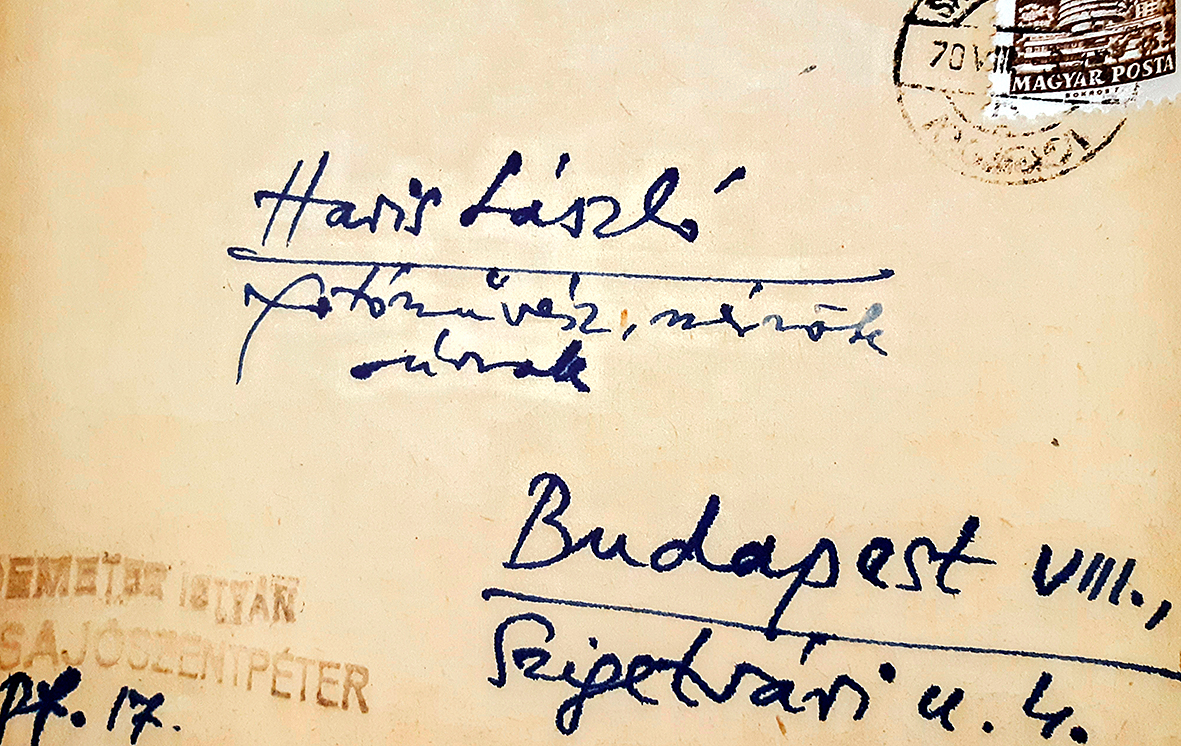 70 VIII
MAGYAR POSTA
Haris László
fotóművész, mérnök
úrnak
Budapest VIII.,
Szigetvári u. 4.
DEMETER ISTVÁN
SAJÓSZENTPÉTER
Pf. 17.